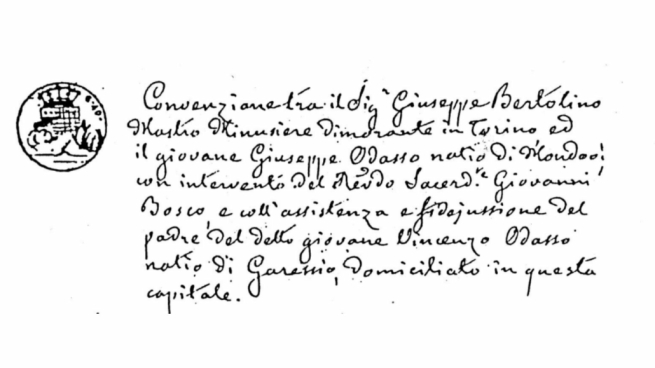 Convenzione tra il Sigr Giuseppe Bertolino
Mastro Minusiere dimorante in Torino ed
il giovane Giuseppe Odasso natio di Mondovì
con intervento del Revdo Sacerd.te Giovanni
Bosco e coll'assistenza e fidejussione del
padre del detto giovane Vincenzo Odasso
natio di Garessio, domiciliato in questa
capitale.